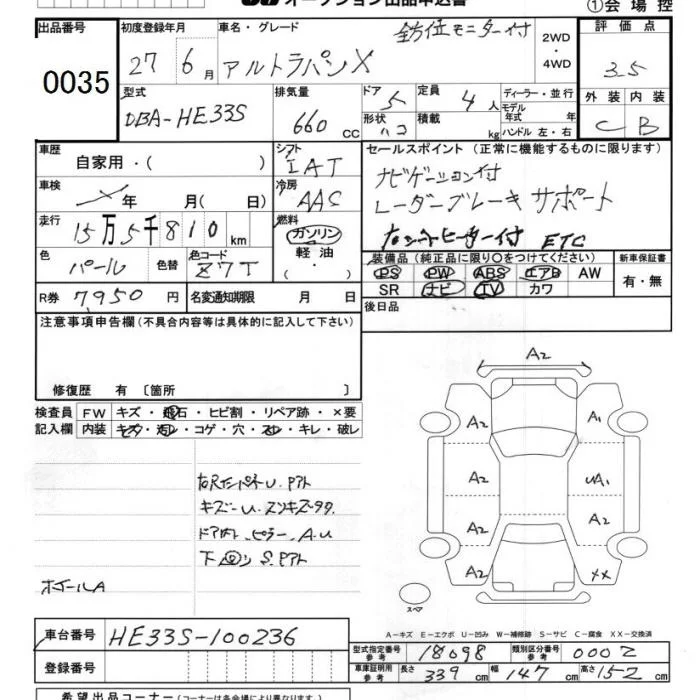 オークション出品申込書
①会場控
出品番号 0035
初度登録年月 27 6月
車名・グレード 全方位モニター付
アルトラパンX
2WD
・
4WD
評価点 3.5
外装 内装
C B
型式 DBA-HE33S
排気量 660 cc
ドア 5
定員 4人
形状 ハコ
積載 kg
ディーラー・並行
モデル
年式 年
ハンドル 左・右
車歴 自家用・( )
シフト IAT
車検 年 月(日)
冷房 AAC
走行 15万5千810km
燃料 ガソリン
軽油
・
色 パール 色替
色コード Z7T
R券 7950円
名変通知期限 月 日
セールスポイント (正常に機能するものに限ります)
ナビゲーション付
レーダーブレーキサポート
シートヒーター付 ETC
装備品 (純正品に限り○をつけてください)
PS PW ABS エアB AW
SR ナビ TV カワ
新車保証書
有・無
後日品
注意事項申告欄(不具合内容等は具体的に記入して下さい)
修復歴 有 〔箇所 〕
検査員 FW キズ・飛石・ヒビ割・リペア跡・×要
記入欄 内装 キズ・汚レ・コゲ・穴・スレ・キレ・破レ
キズ-U.
ドア内、ピラー、A.U
ホイールA
A2
A2 A1
A2 UA1
A2 A2
A2 XX
スペア
A-キズ E-エクボ U-凹み W-補修跡 S-サビ C-腐食 XX-交換済
車台番号 HE33S-100236
登録番号
型式指定番号 参考 18098
類別区分番号 参考 0002
車庫証明用 参考 長さ 339cm 幅 147cm 高さ 152cm
希望出品コーナー (コーナーは各会場により異なります。)